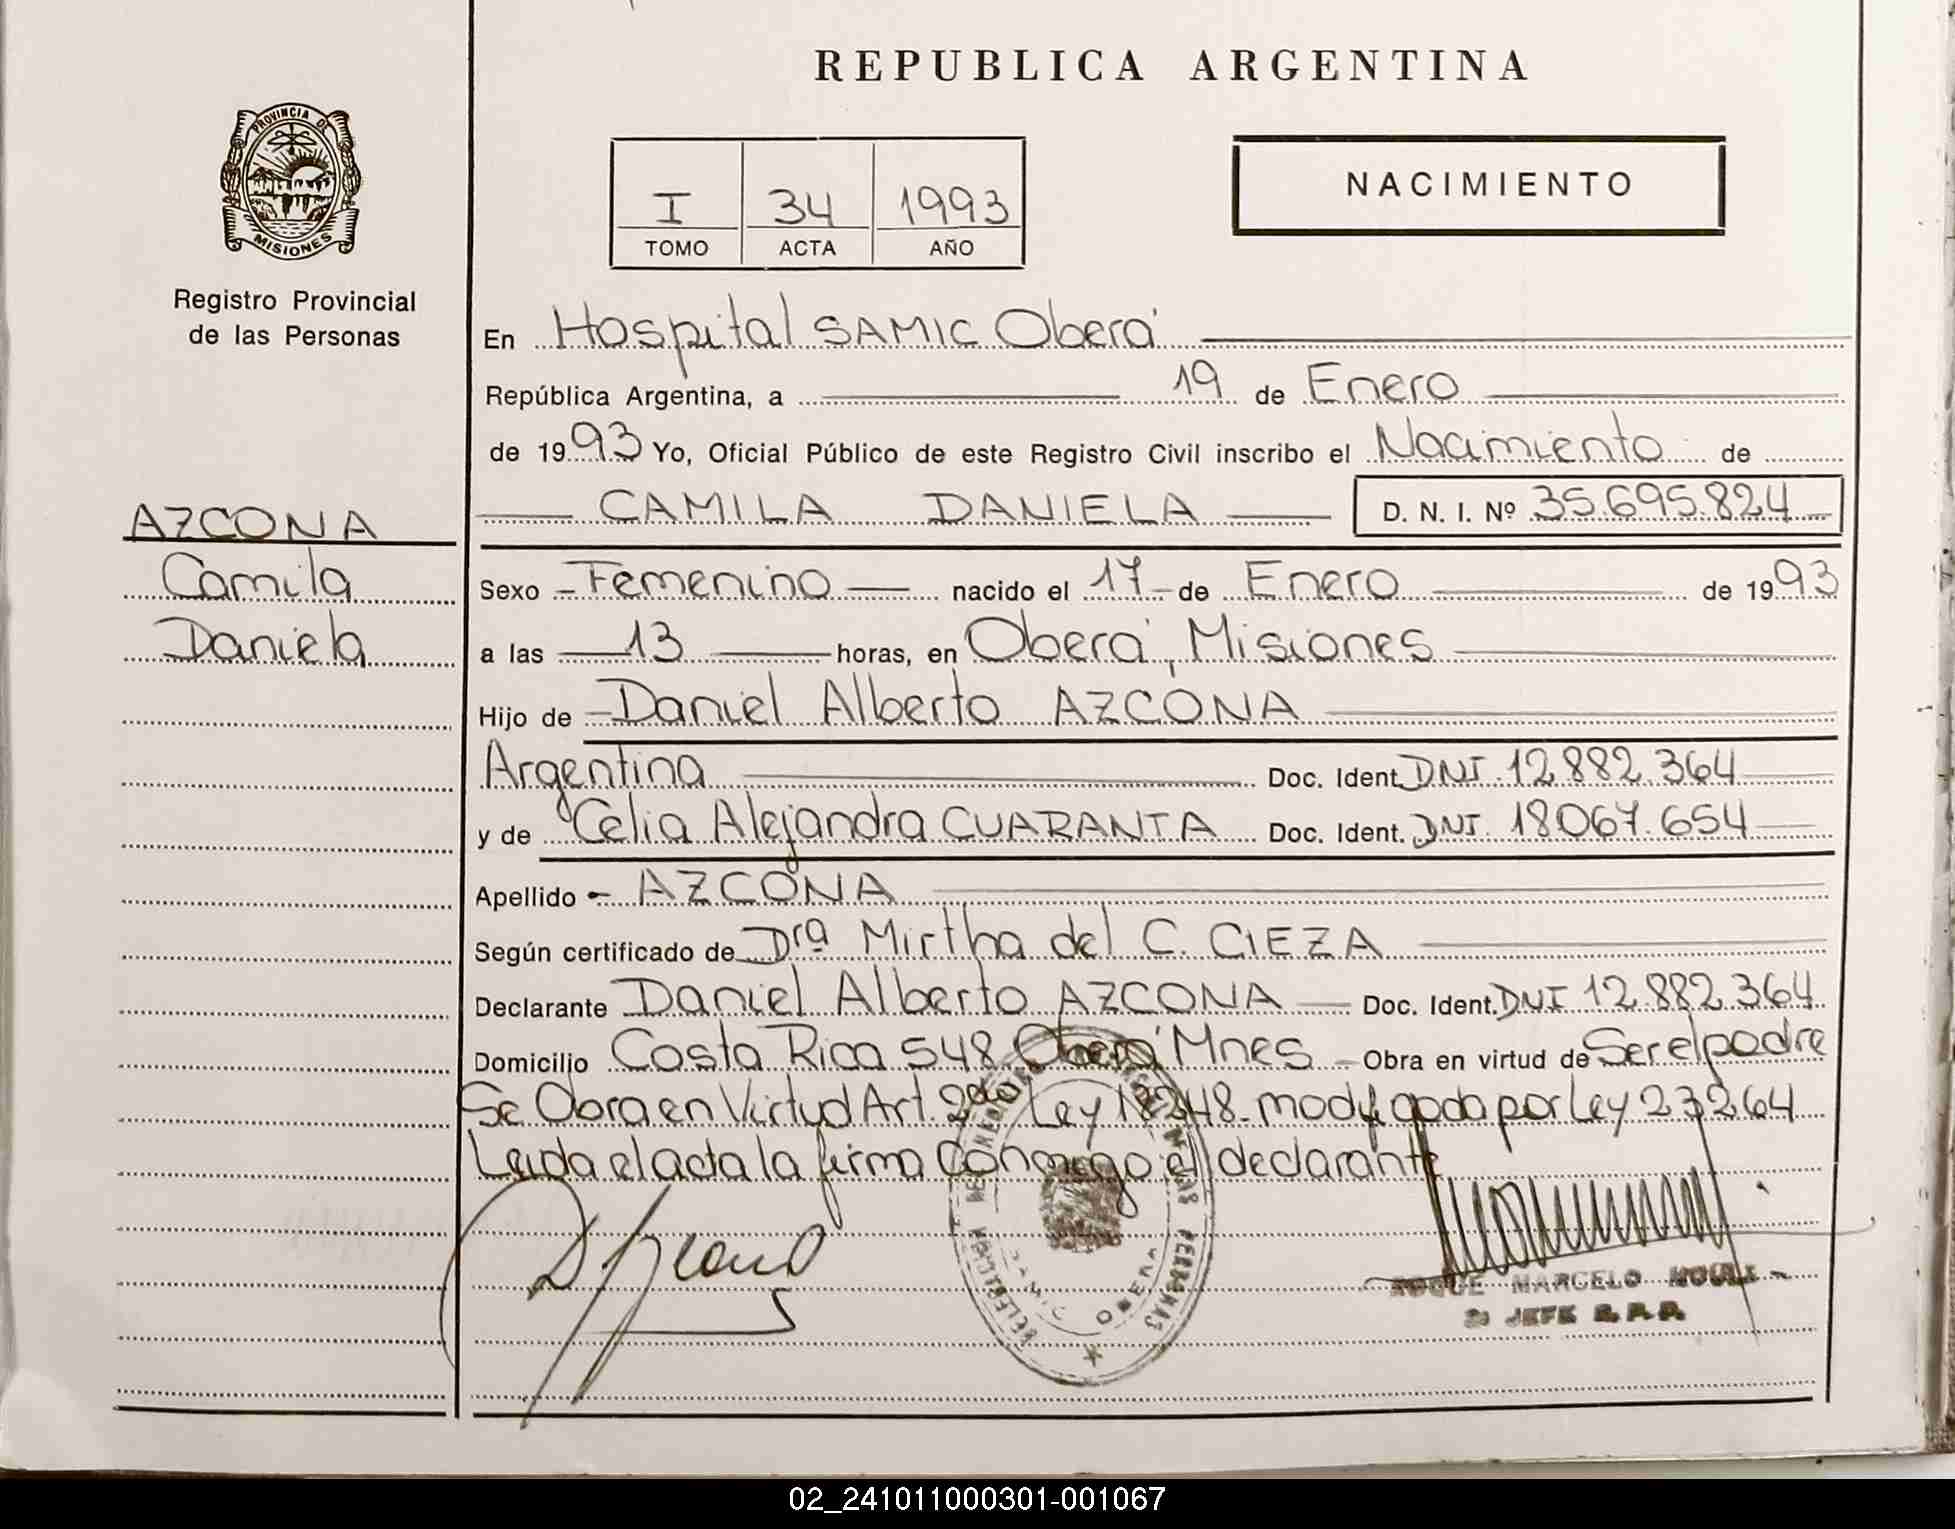 REPUBLICA ARGENTINA
PROVINCIA DE
MISIONES
Registro Provincial
de las Personas
I 34 1993
TOMO ACTA AÑO
NACIMIENTO
En Hospital SAMIC Oberá
República Argentina, a 19 de Enero
de 1993 Yo, Oficial Público de este Registro Civil inscribo el Nacimiento de
CAMILA DANIELA D. N. I. Nº 35.695.824
AZCONA
Camila
Daniela
Sexo Femenino nacido el 17 de Enero de 1993
a las 13 horas, en Oberá, Misiones
Hijo de Daniel Alberto AZCONA
Argentina Doc. Ident. DNI 12.882.364
y de Celia Alejandra CUARANTA Doc. Ident. DNI 18067.654
Apellido - AZCONA
Según certificado de Drª Mirtha del C. CIEZA
Declarante Daniel Alberto AZCONA Doc. Ident. DNI 12.882.364
Domicilio Costa Rica 548 Oberá Mnes Obra en virtud de Ser el padre
Se Obra en Virtud Art. 2do Ley 18248 modifgada por Ley 23264
Leida el acta la firma Conmigo el declarante
PERSONAS
SAMIC OBERA
MARCELO
JEFE R.P.P.
02_241011000301-001067